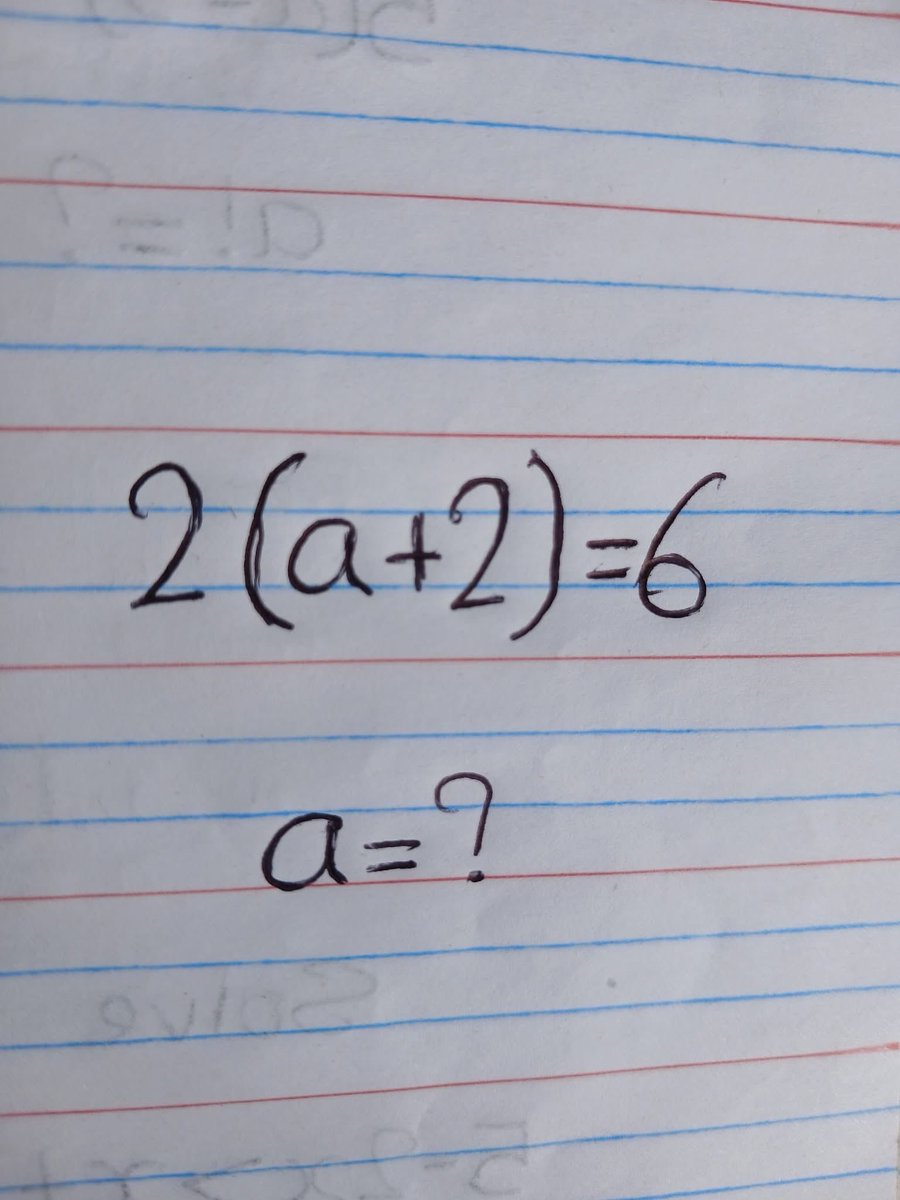 2(a+2)=6
a=?